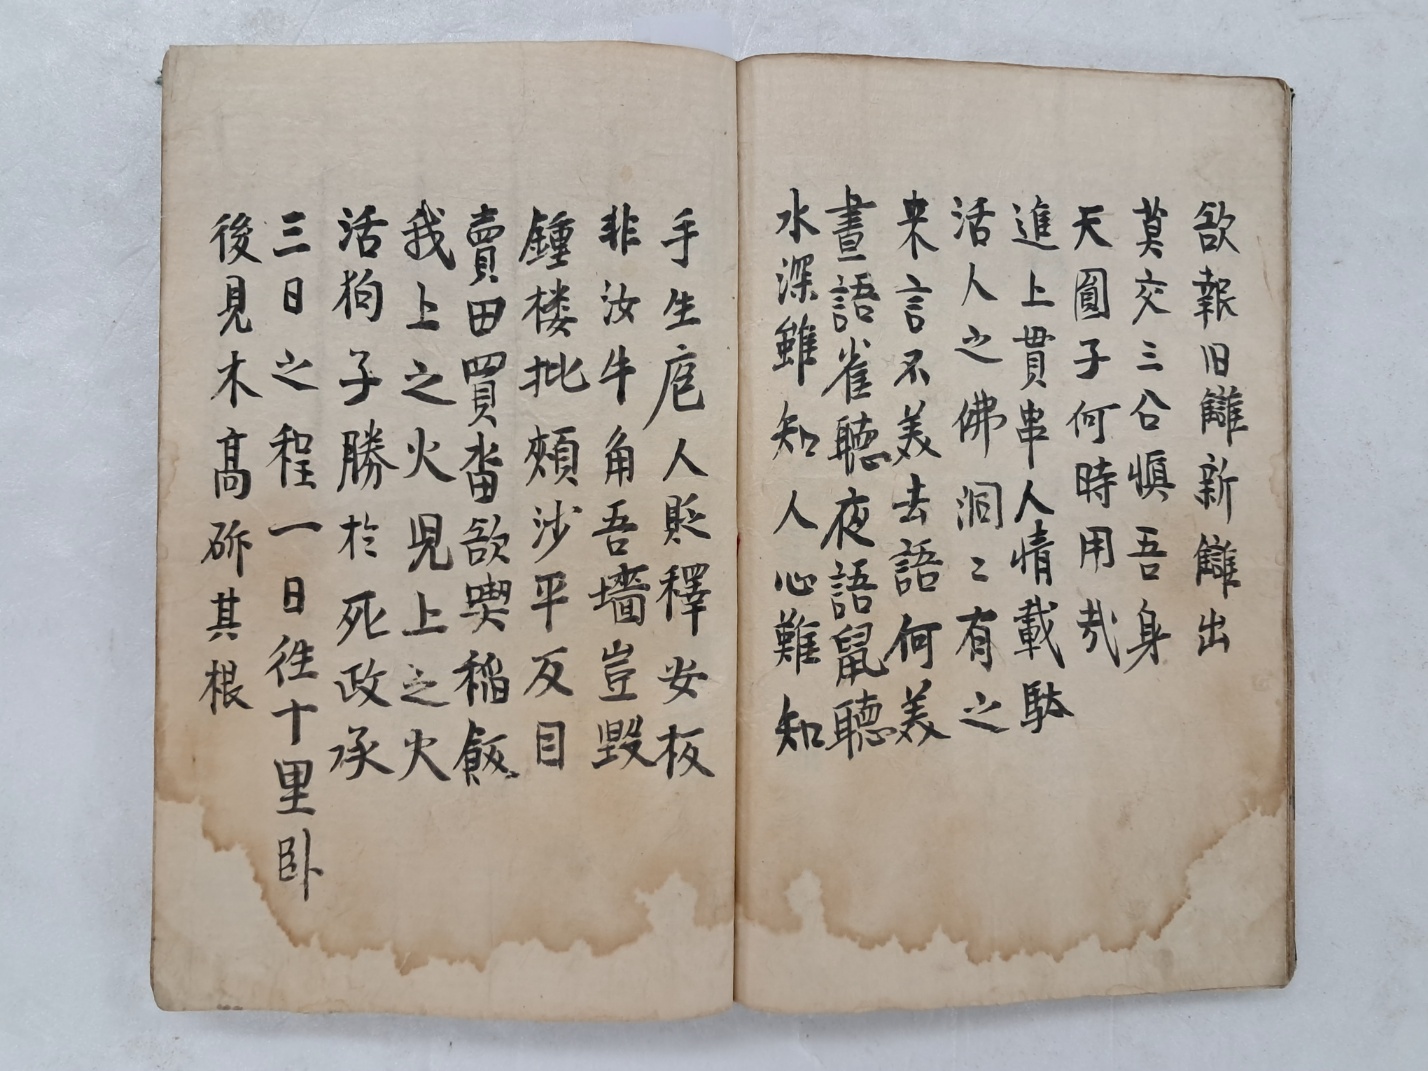 欲報旧讎新讎出
莫交三公慎吾身
天圓子何時用哉
進上貫串人情載駄
活人之佛洞〻有之
来言不美去語何美
晝語雀聽夜語鼠聽
水深雖知人心難知
手生庖人貶釋安板
非汝牛角吾墻豈毀
鍾楼批頰沙平反目
賣田買畓欲喫稲飯
我上之火児上之火
活狗子勝於死政承
三日之程一日徃十里卧
後見木高斫其根